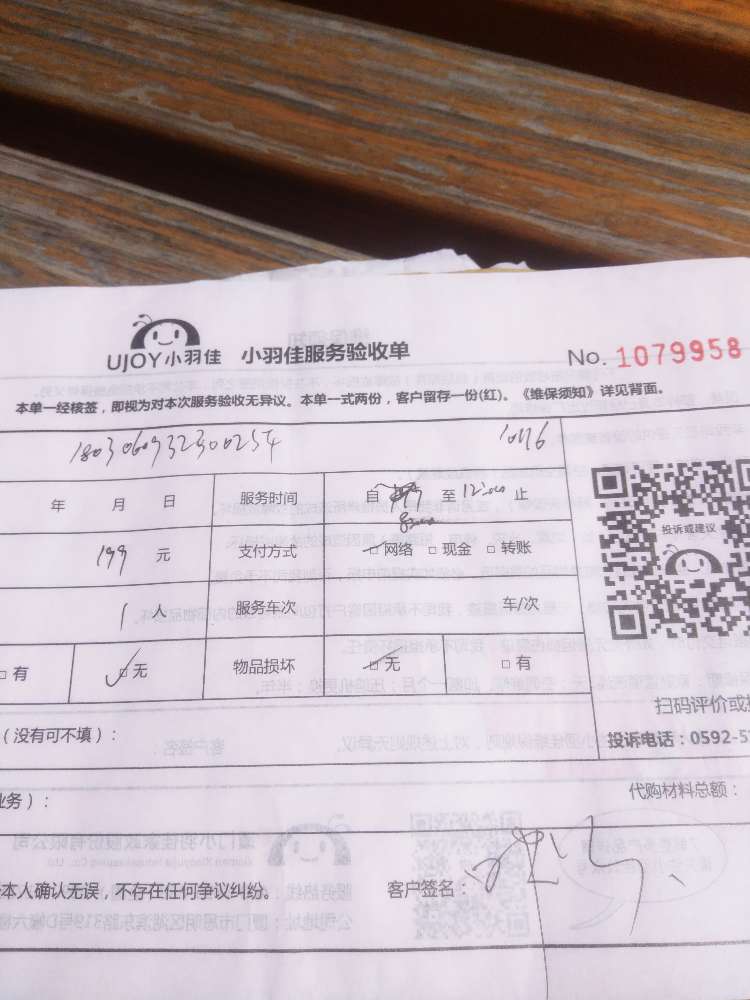 UJOY小羽佳 小羽佳服务验收单 No. 1079958
本单一经核签,即视为对本次服务验收无异议。本单一式两份,客户留存一份(红)。《维保须知》详见背面。
1803060932300254
年 月 日 服务时间 自 8:00 至 12:00 止
投诉或建议
199 元 支付方式 □ 网络 □ 现金 □ 转账
1 人 服务车次 车/次
□ 有 □ 无 物品损坏 □ 无 □ 有
扫码评价或
(没有可不填):
投诉电话:0592-5
业务): 代购材料总额:
本人确认无误,不存在任何争议纠纷。 客户签名: